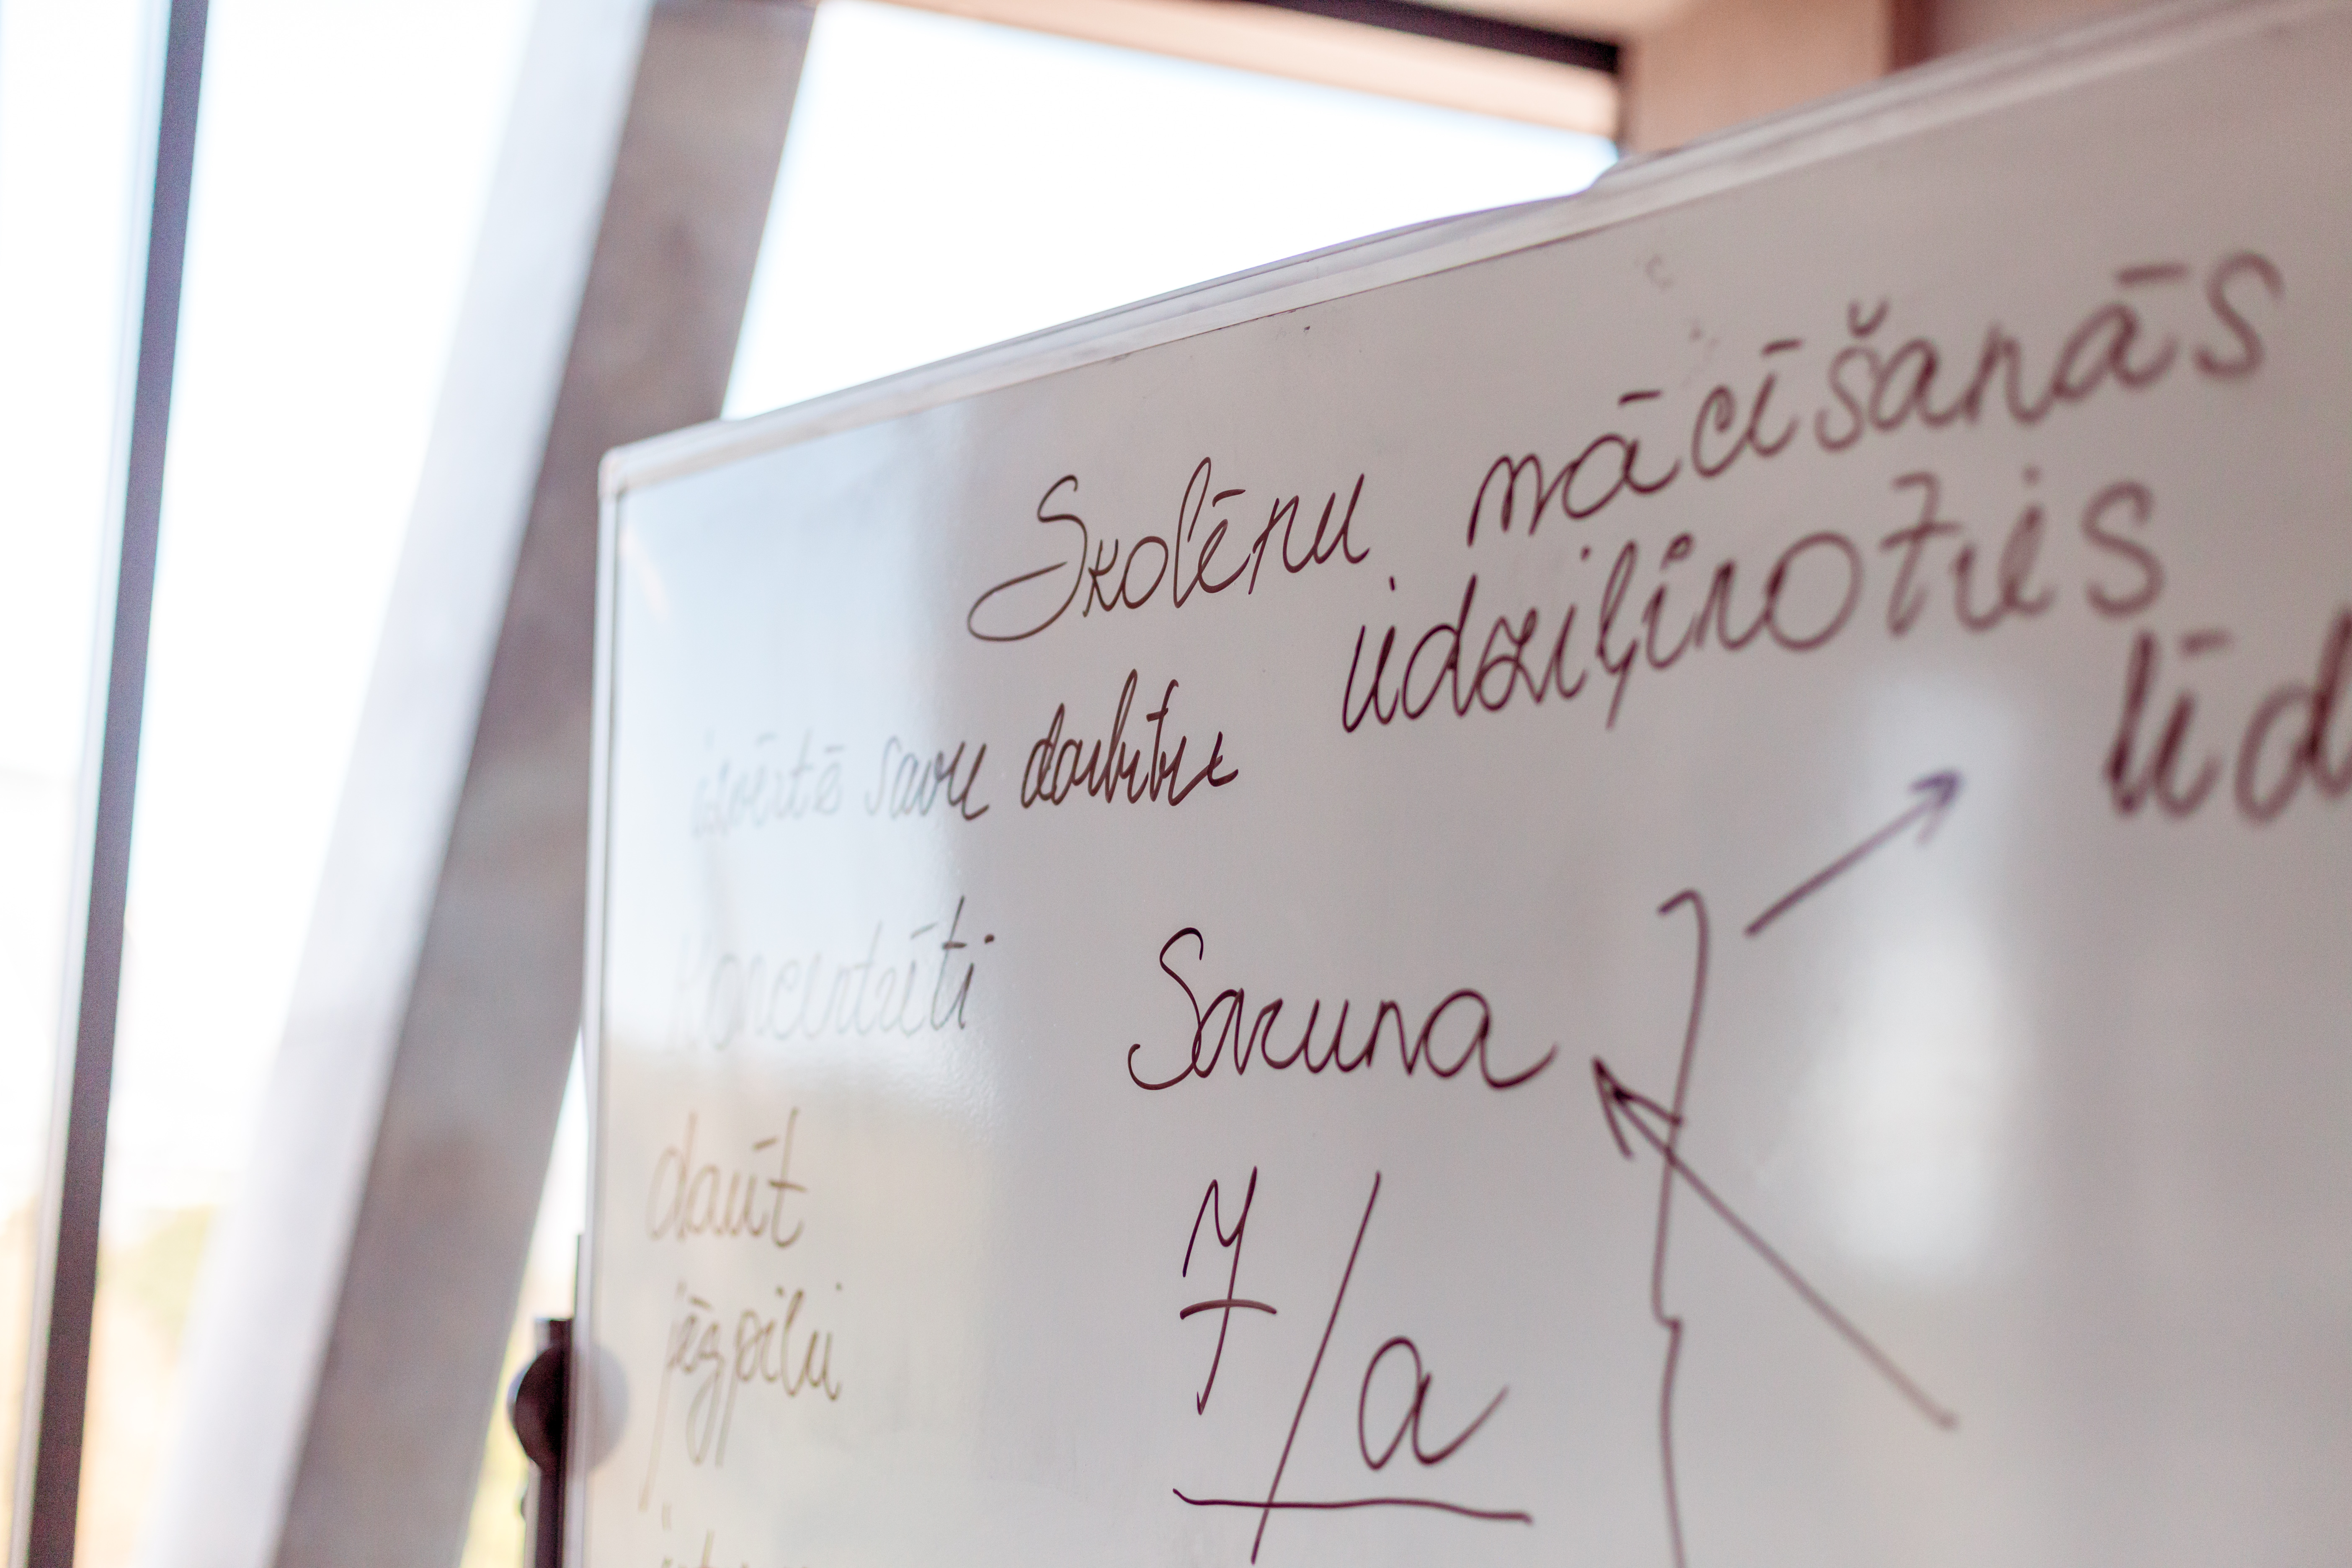 Skolēnu mācīšanās
izvērtē savu darbību iedziļinoties
līd
Koncentrēti
Saruna
daudz
jēgpilni
/a